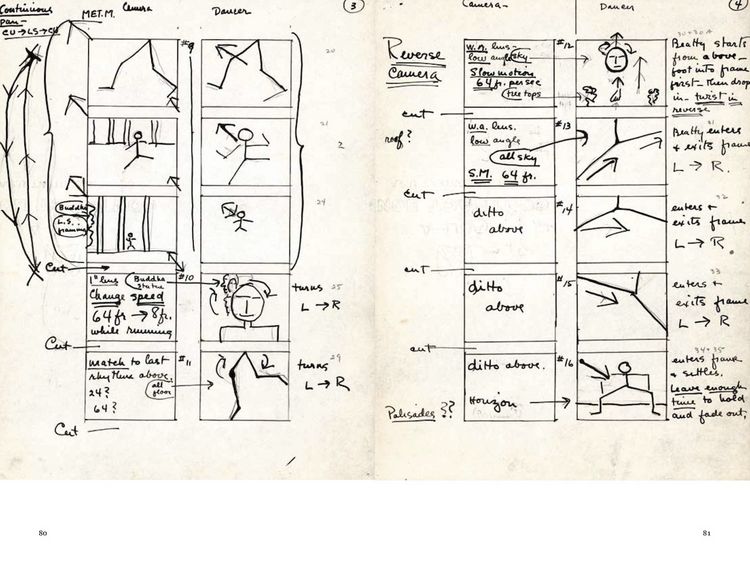 Continuous
pan-
CU→LS→CU
MET.M. Camera
Dancer
3
#9
20
21
2
24
Buddha
L.S.
framing
Cut
#10
1" lens
Buddha
Statue
Change speed
64 fr → 8 fr.
while running
turns 25
L → R
Cut
#11
match to last
rhythm above.
24?
64?
all
floor
turns 29
L → R
Cut
80
Camera-
Dancer
4
Reverse
Camera
#12
w.a. lens-
low angle sky
Slow motion
64 fr. per sec
tree tops
30+30A
Beatty starts
from above-
foot into frame
first- then drop
in- twist in
reverse
cut
roof?
#13
w.a. lens.
low angle
all sky
S.M. 64 fr.
Beatty enters
+ exits frame
L → R.
cut
#14
ditto
above
32
enters +
exits frame
L → R
cut
#15
ditto
above
33
enters +
exits frame
L → R
cut
#16
ditto above.
Horizon
34+35
enters frame
+ settles.
Leave enough
time to hold
and fade out,
Palisades??
81